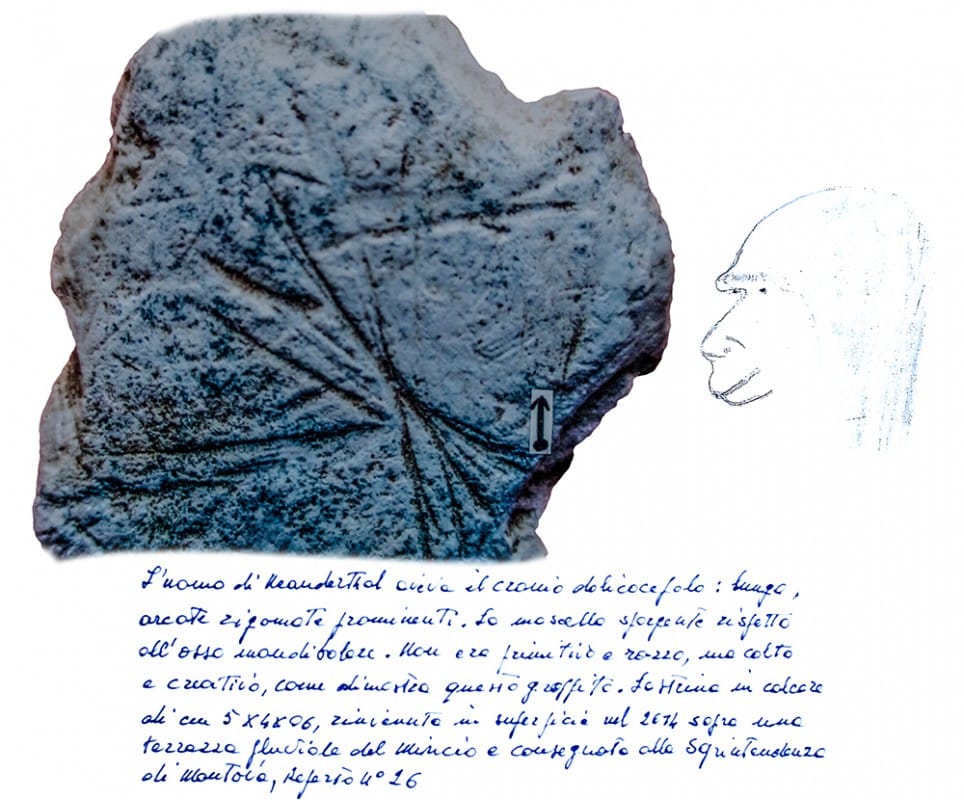 L'uomo di Neanderthal aveva il cranio dolicocefalo: lungo,
arcate zigomate prominenti. La mascella sporgente rispetto
all'osso mandibolare. Non era primitivo e rozzo, ma colto
e creativo, come dimostra questo graffito. Lastrina in calcare
di cm 5x4x06, rinvenuta in superficie nel 2014 sopra una
terrazza fluviale del Mincio e consegnata alla Soprintendenza
di Mantova, Reperto N° 26